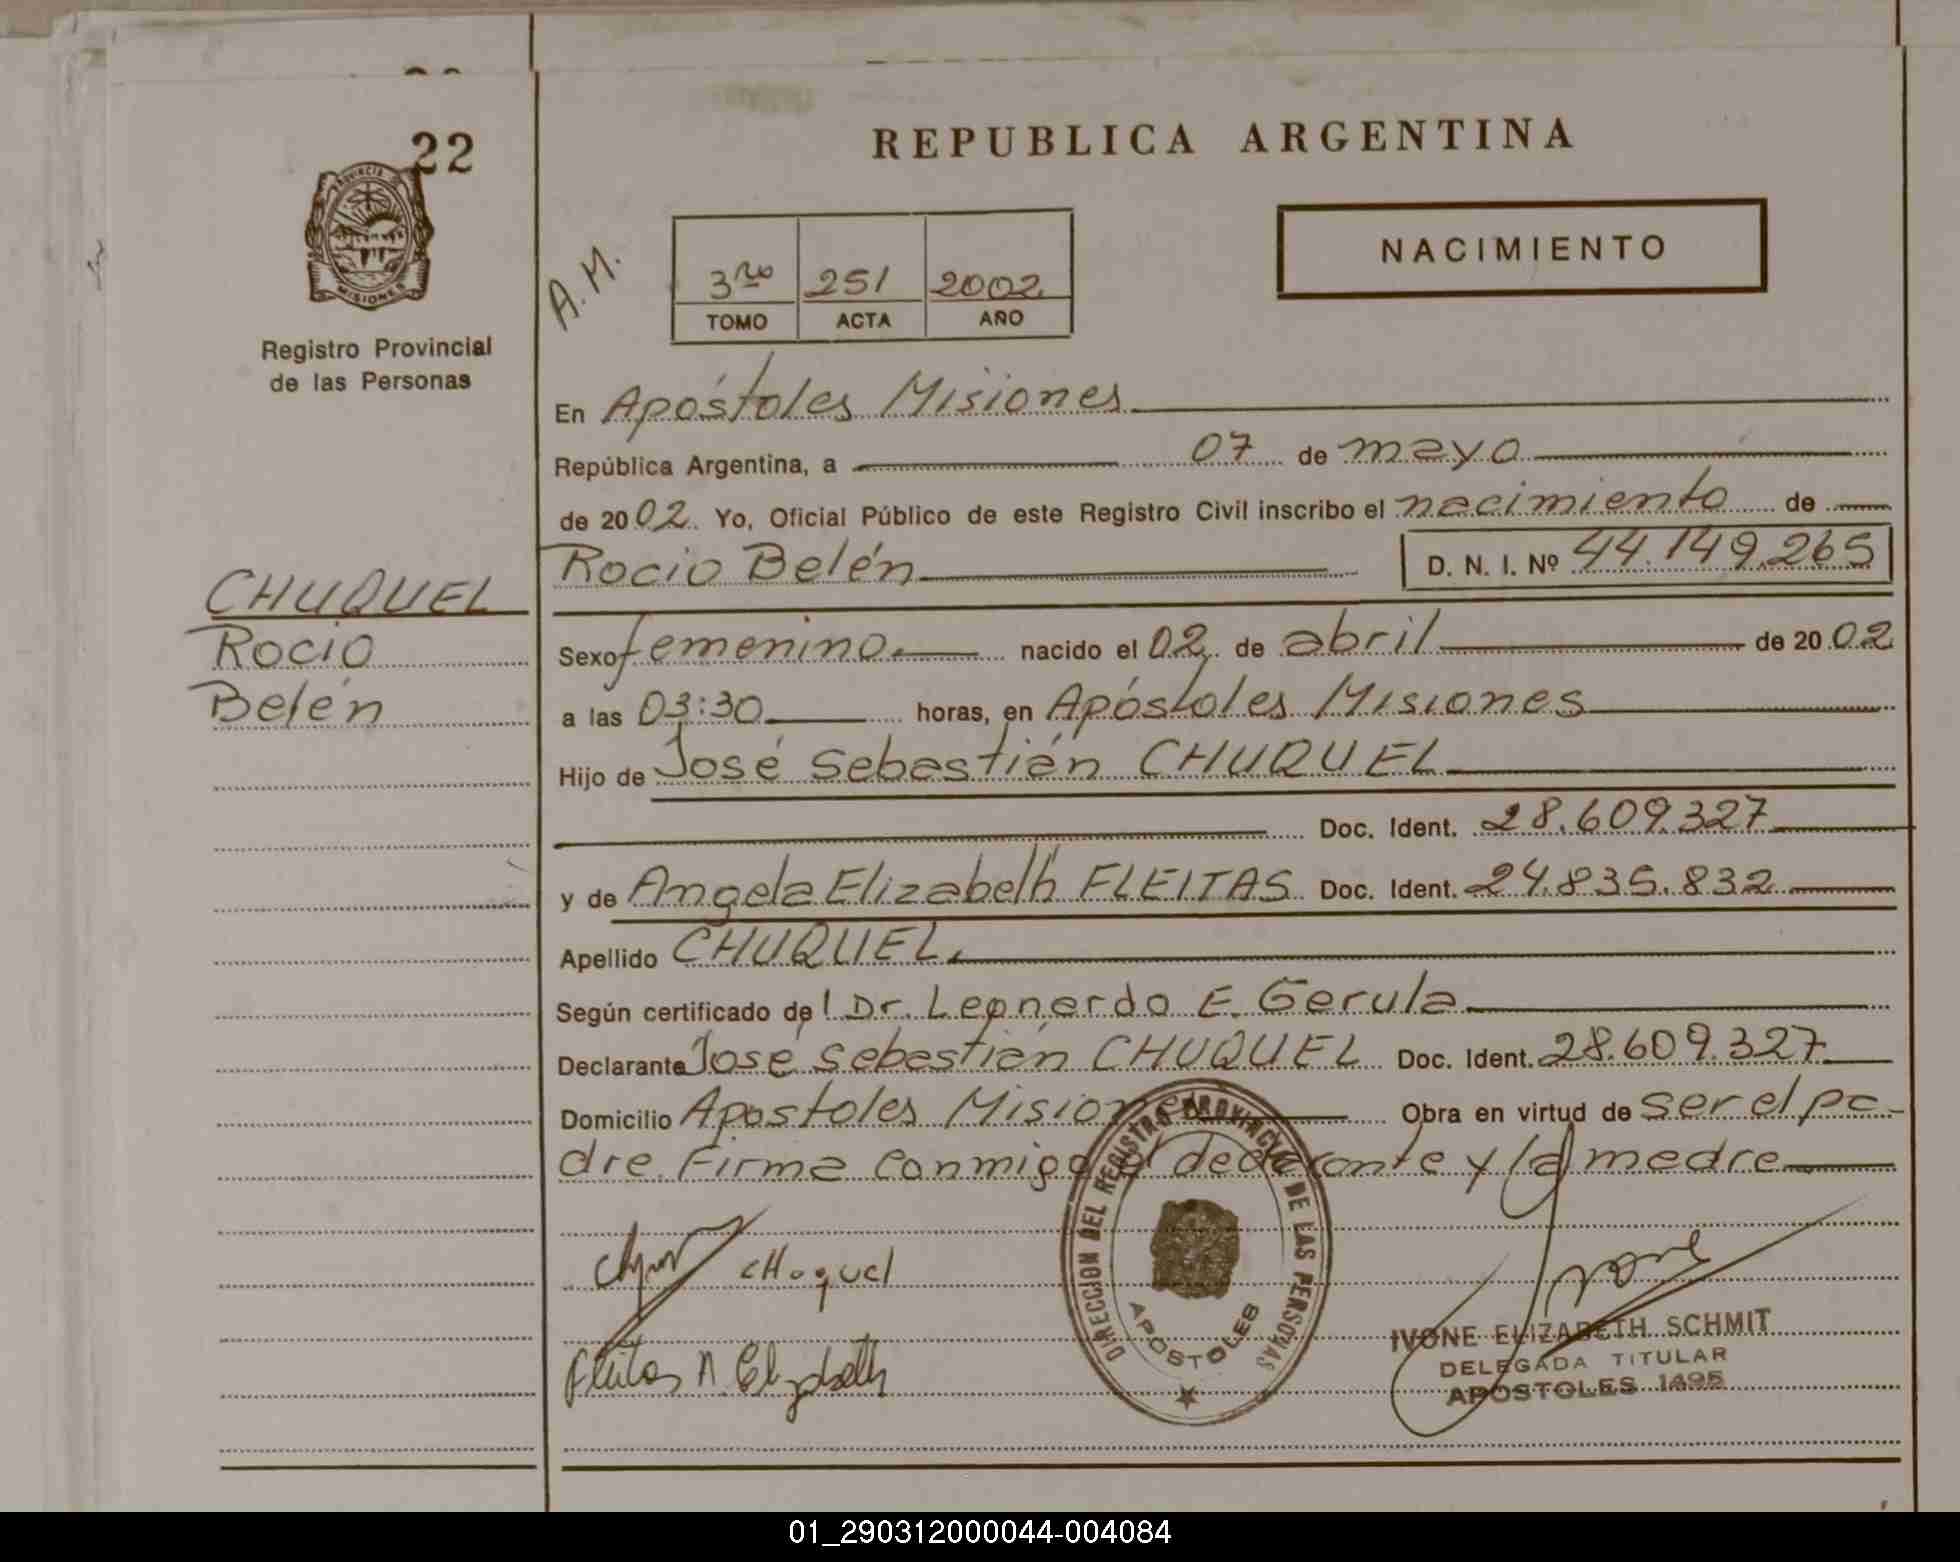 22
PROVINCIA DE
MISIONES
Registro Provincial
de las Personas
CHUQUEL
Rocio
Belén
REPUBLICA ARGENTINA
A.M.
3ro 251 2002
TOMO ACTA AÑO
NACIMIENTO
En Apóstoles Misiones
República Argentina, a 07 de mayo
de 2002. Yo, Oficial Público de este Registro Civil inscribo el nacimiento de
Rocio Belén D. N. I. Nº 44.149.265
Sexo femenino. nacido el 02 de abril de 2002
a las 03:30 horas, en Apóstoles Misiones
Hijo de José Sebastián CHUQUEL
Doc. Ident. 28.609.327
y de Angela Elizabeth FLEITAS Doc. Ident. 24.835.832
Apellido CHUQUEL.
Según certificado del Dr. Leonardo E. Gerula
Declarante José Sebastián CHUQUEL Doc. Ident. 28.609.327
Domicilio Apostoles Misiones Obra en virtud de ser el pa-
dre. Firma conmigo el declarante y la madre
CHoquel
Fleitas A. Elizabeth
DIRECCION DEL REGISTRO PROVINCIAL DE LAS PERSONAS
APOSTOLES
IVONE ELIZABETH SCHMIT
DELEGADA TITULAR
APOSTOLES 1495
01_290312000044-004084